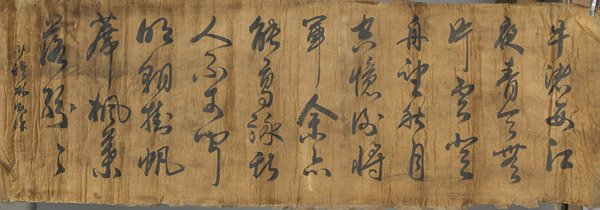 牛渚西江
夜青天無
片雲登
舟望秋月
空憶謝將
軍余亦
能高詠斯
人不可聞
明朝掛帆
席楓葉
落紛々